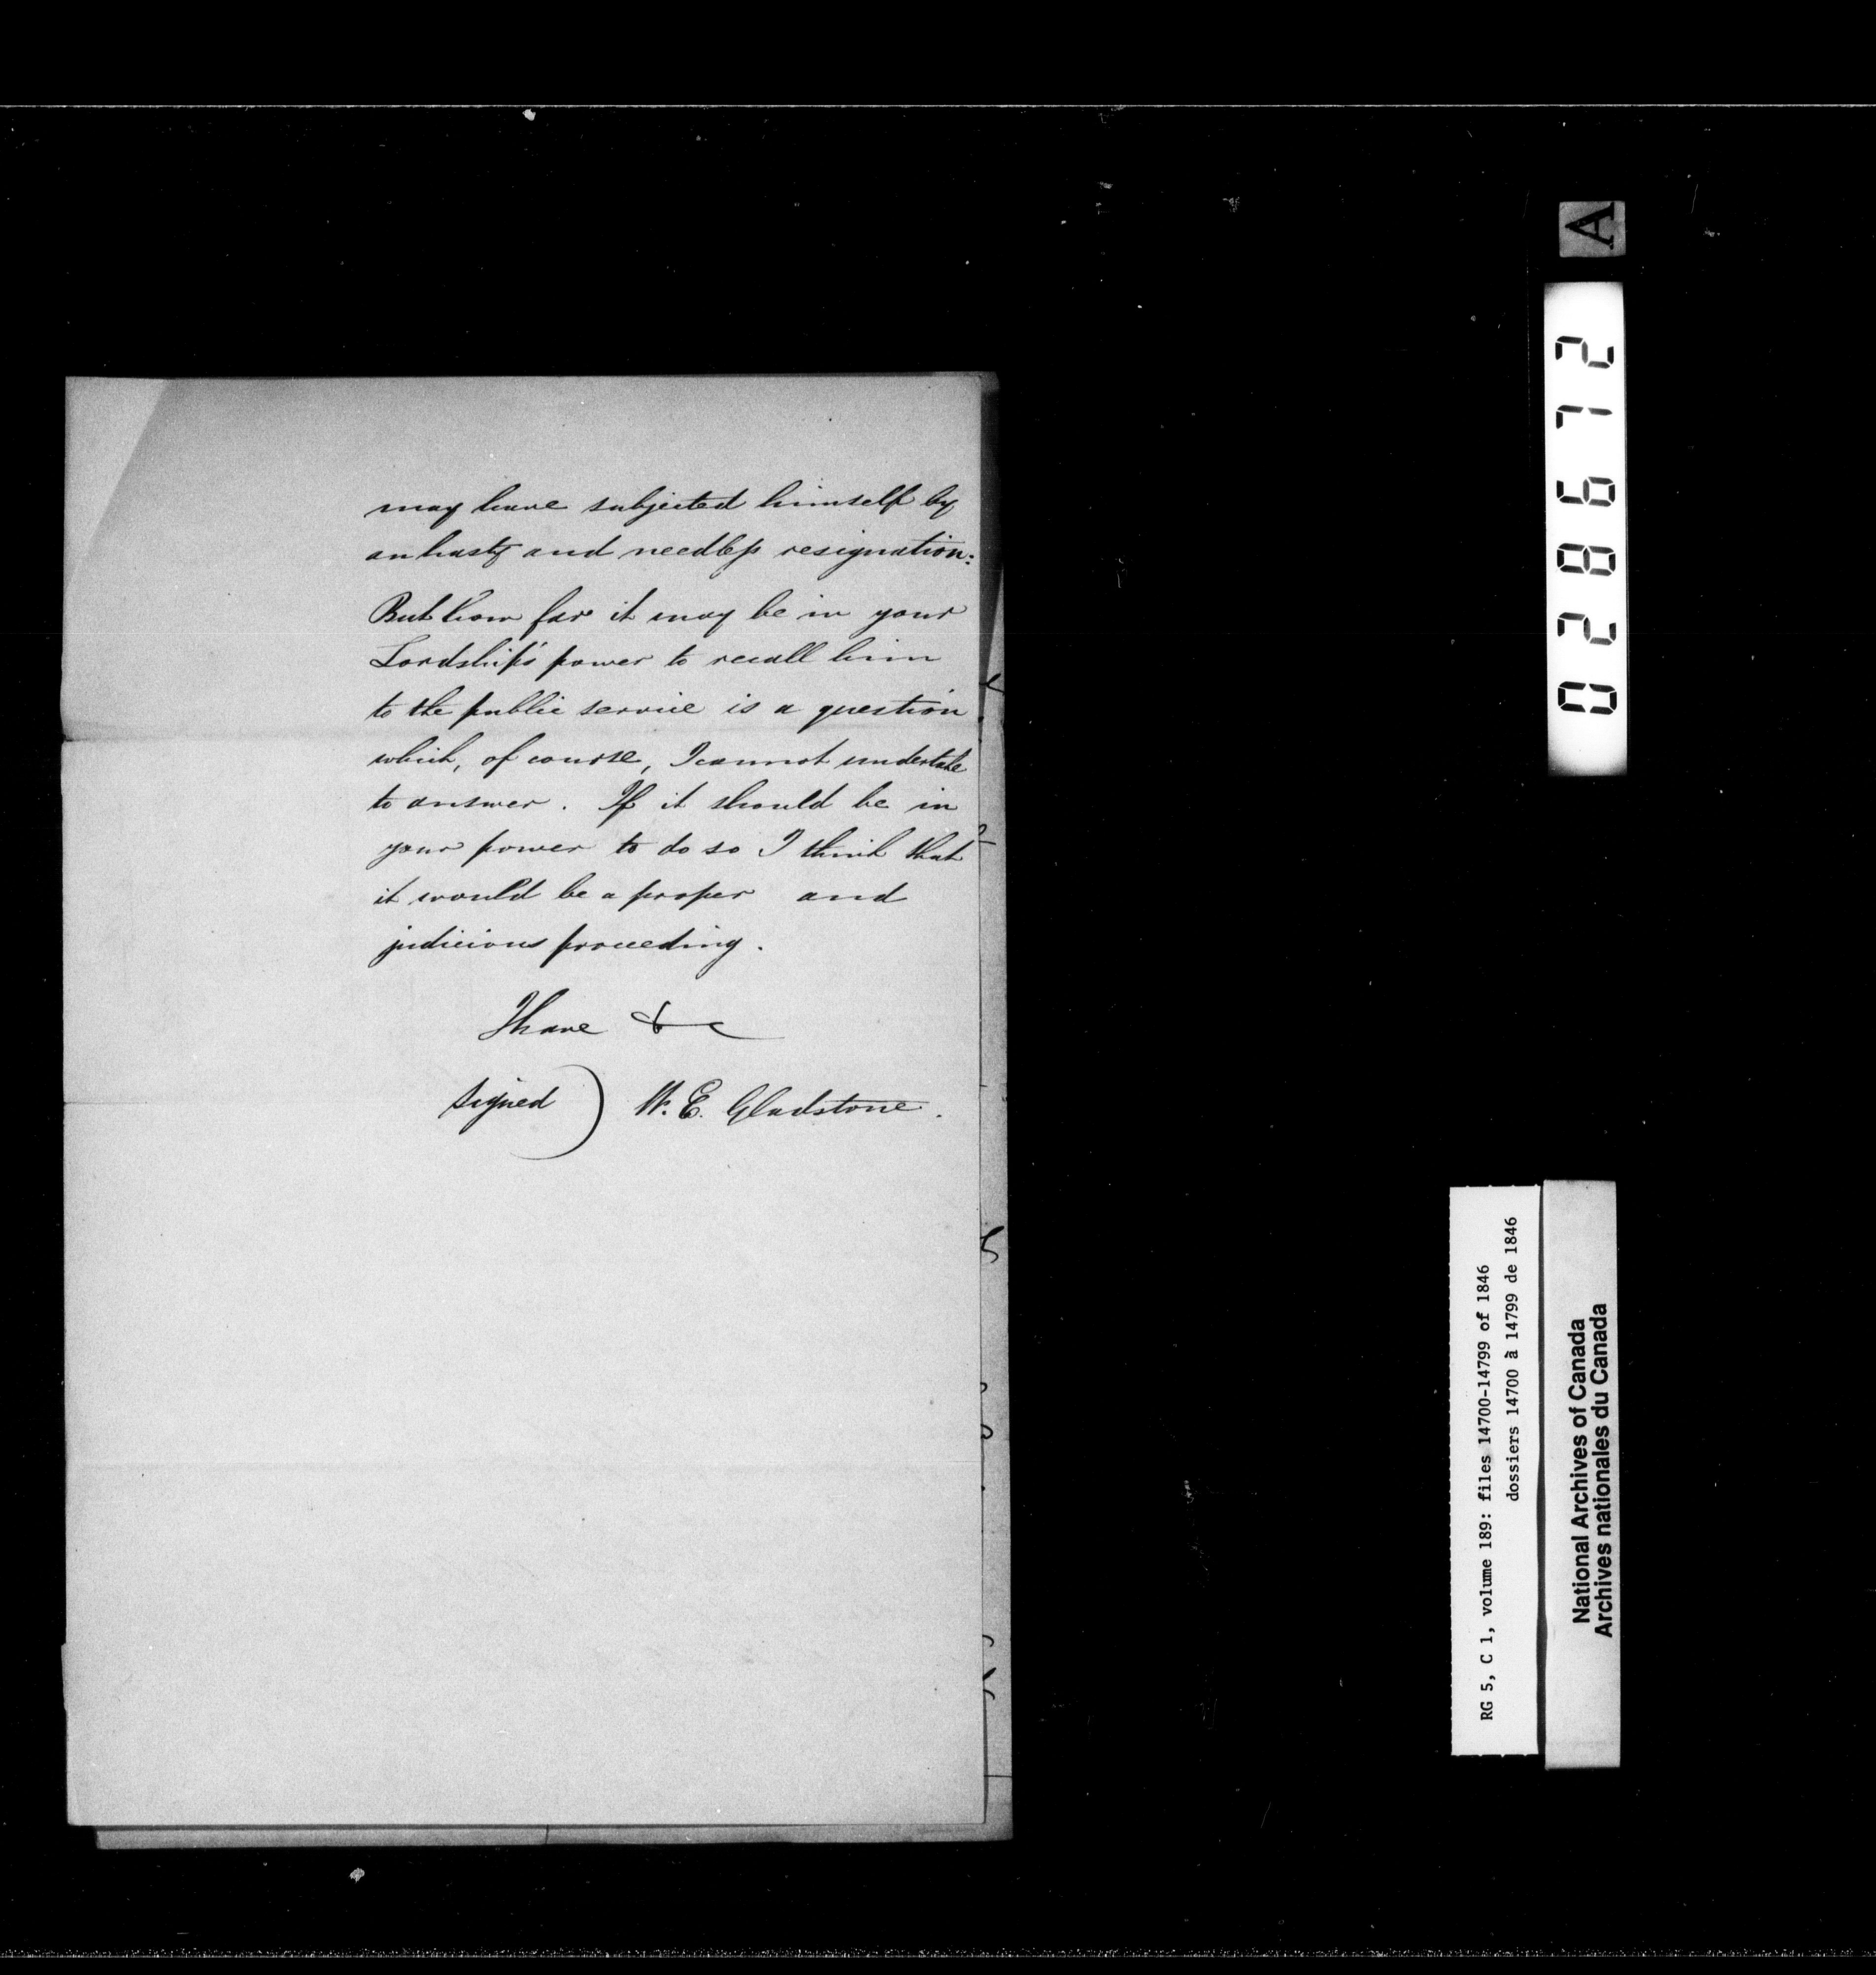 may have subjected himself by
an hasty and needless resignation:
But how far it may be in your
Lordship's power to recall him
to the public service is a question
which, of course, I cannot undertake
to answer. If it should be in
your power to do so I think that
it would be a proper and
judicious proceeding.
I have &c
signed) W. E. Gladstone.
A
028672
RG 5, C 1, volume 189: files 14700-14799 of 1846
dossiers 14700 à 14799 de 1846
National Archives of Canada
Archives nationales du Canada